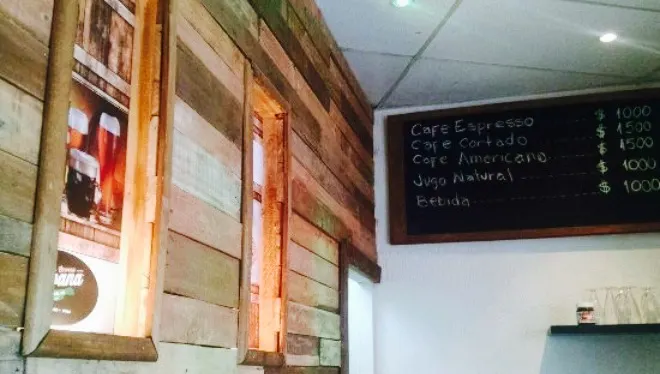 Cafe Espresso $ 1000
Cafe Cortado $ 1500
Cafe Americano $ 1500
Jugo Natural $ 1000
Bebida $ 1000